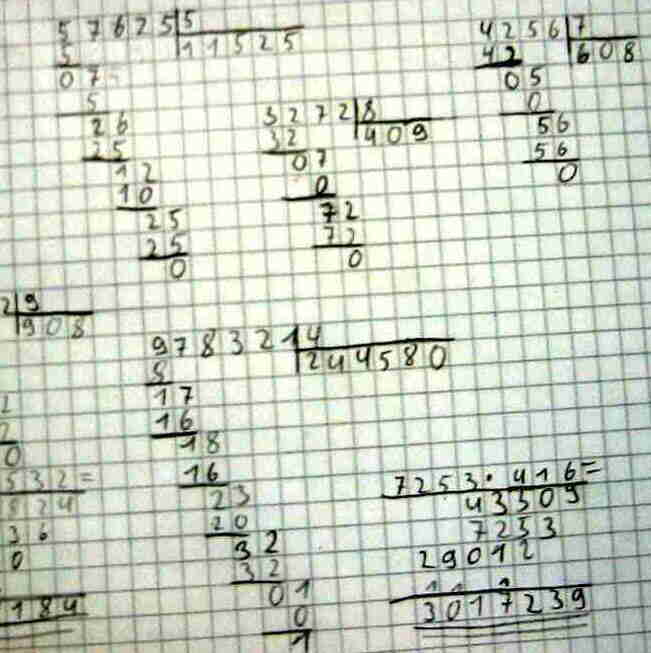 57625 5
5 11525
07
5
26
25
12
10
25
25
0
4256 7
42 608
05
0
56
56
0
3272 8
32 409
07
0
72
72
0
2 9
908
2
2
0
532=
824
36
0
184
978321 4
8 244580
17
16
18
16
23
20
32
32
01
0
1
7253·416=
43509
7253
29012
1 1 1
3017239